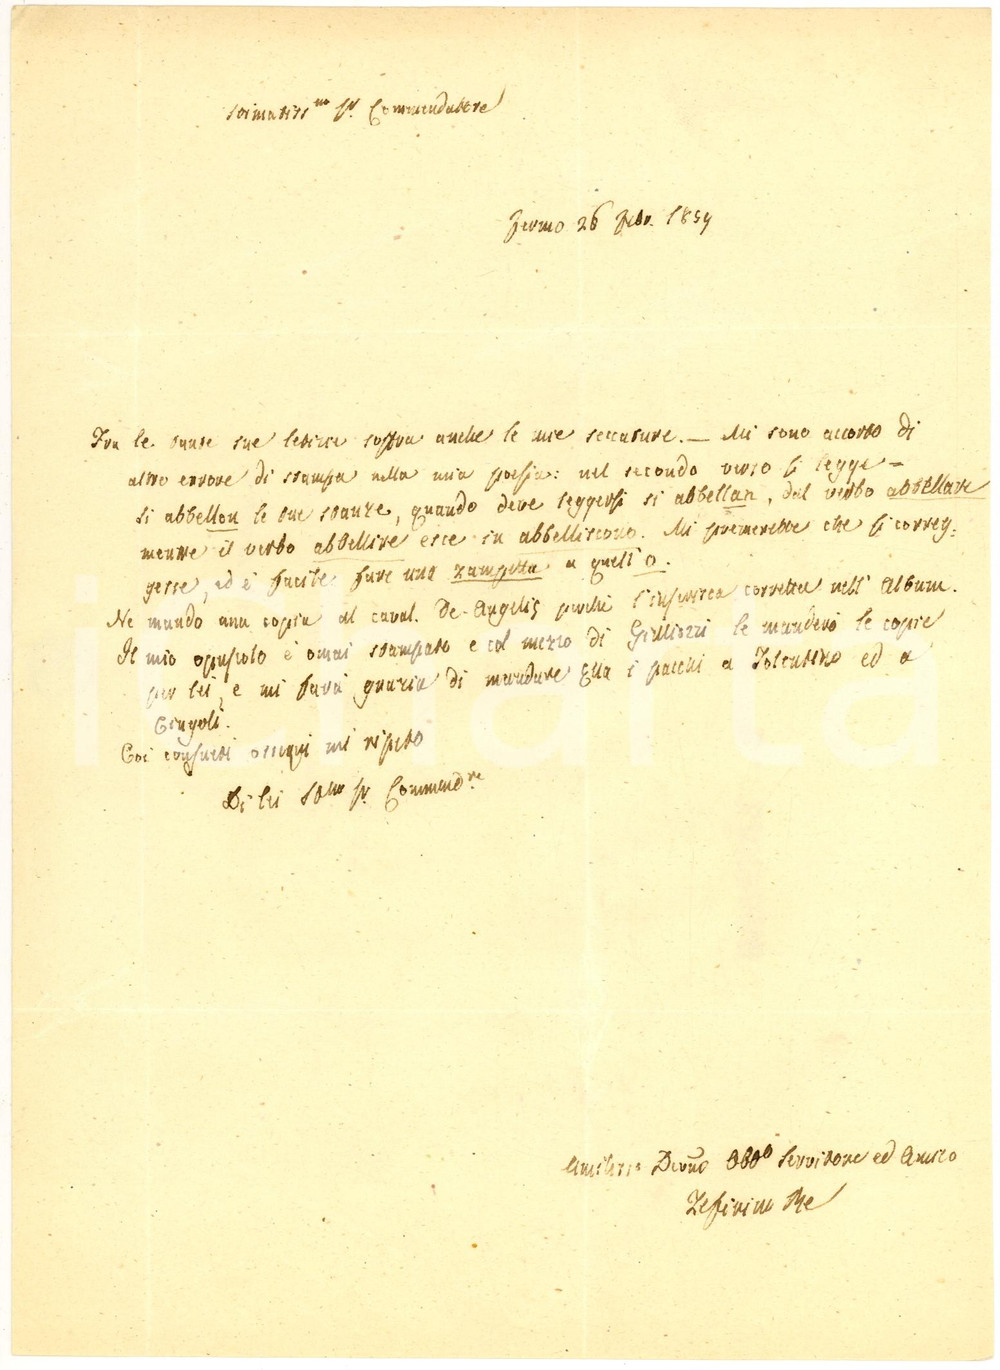 Stimatiss.mo Sr. Commendatore
Fermo 26 Febr. 1859
Fra le tante sue letizie soffra anche le mie seccature. — Mi sono accorto di
altro errore di stampa nella mia poesia: nel secondo verso si legge =
si abbellon le tue stanze, quando deve leggersi si abbellan, dal verbo abbellare
mentre il verbo abbellire esce in abbelliscono. Mi premerebbe che si correg:
gesse, ed è facile fare una zampetta a quell'o.
Ne mando una copia al caval. De-Angelis perchè l'inserisca corretta nell'Album.
Il mio opuscolo è omai stampato e col mezzo di Gilliozzi le manderò le copie
per lei, e mi farà grazia di mandare Ella i pacchi a Tolentino ed a
Cingoli.
Coi consueti ossequi mi ripeto
Di lei Stmo Sr. Commendre
Devmo Obbo Servitore ed Amico
Zefirino Re